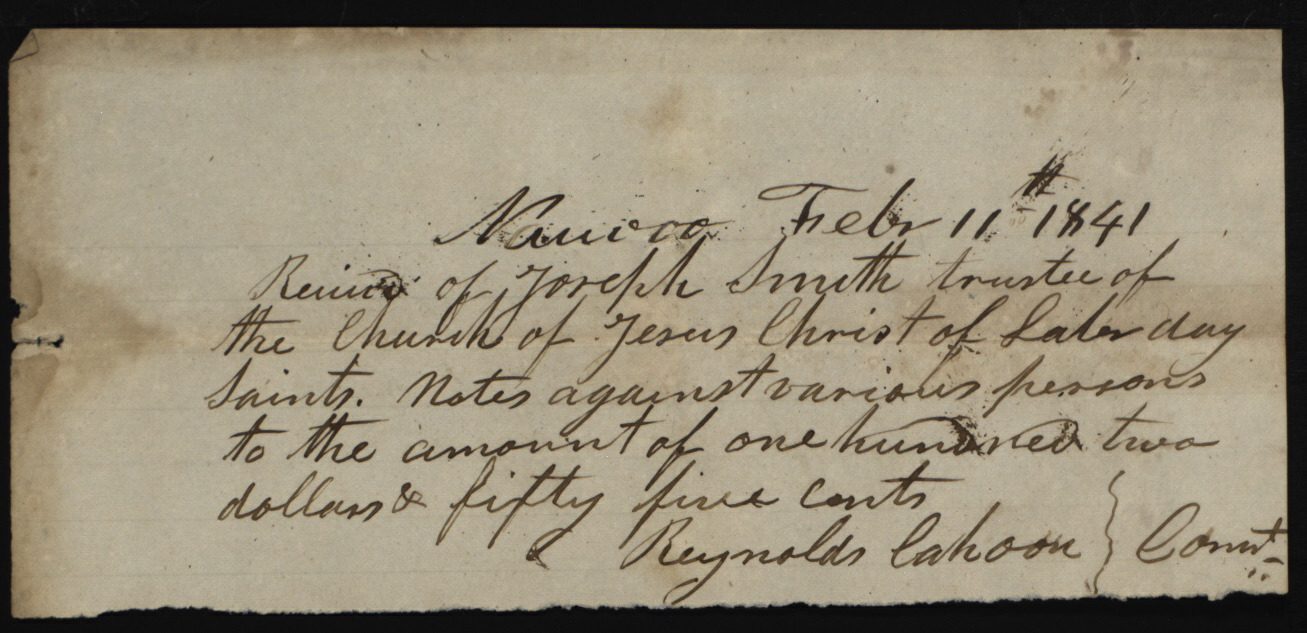 Nauvoo Febr 11th 1841
Reived of Joseph Smith trustee of
the Church of Jesus Christ of Later day
Saints. Notes against various persons
to the amount of one hundred two
dollars & fifty five cents
Reynolds Cahoon } Comt